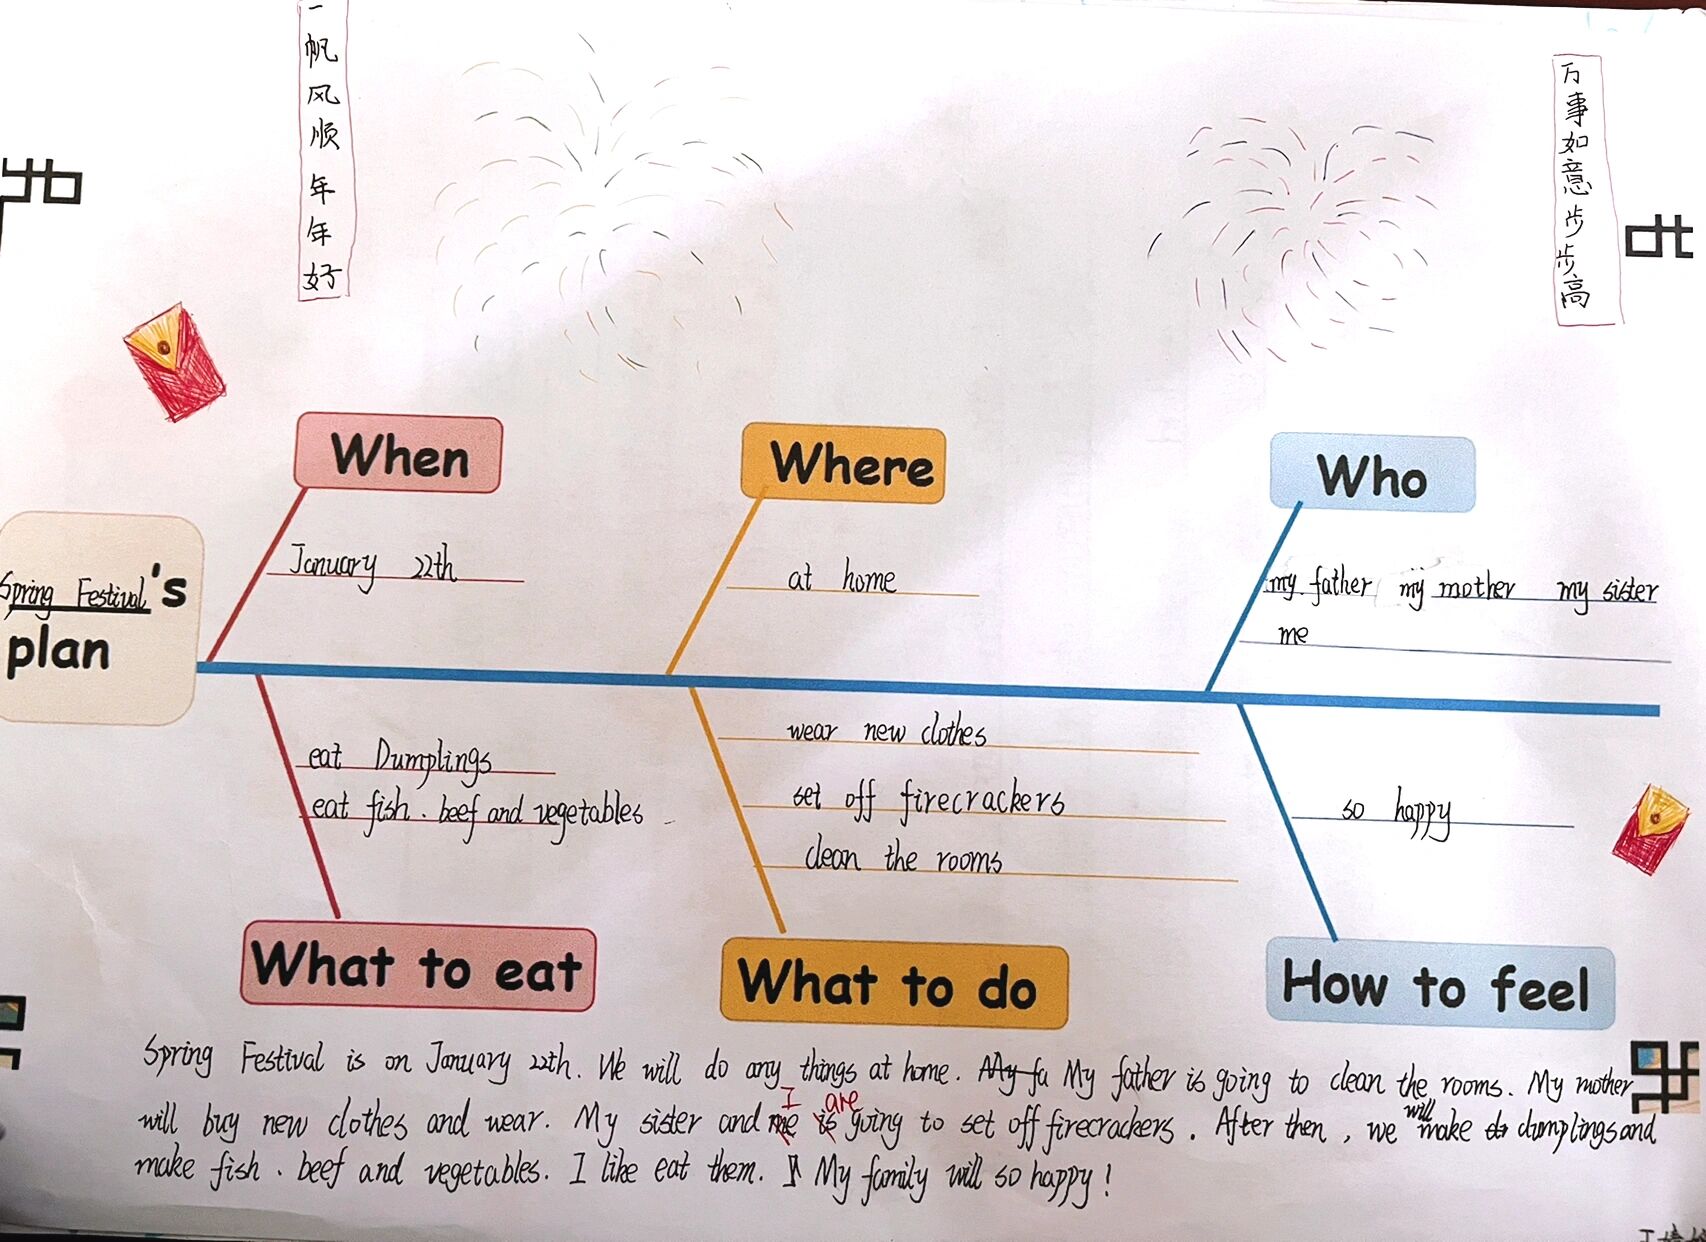 一帆风顺年年好
万事如意步步高
When
Where
Who
January 22th
at home
my father my mother my sister
me
Spring Festival's
plan
eat Dumplings
eat fish. beef and vegetables
wear new clothes
set off firecrackers
clean the rooms
so happy
What to eat
What to do
How to feel
Spring Festival is on January 22th. We will do any things at home. My fa My father is going to clean the rooms. My mother
I are
will
will buy new clothes and wear. My sister and me is going to set off firecrackers. After then, we make dumplings and
make fish. beef and vegetables. I like eat them. My family will so happy!